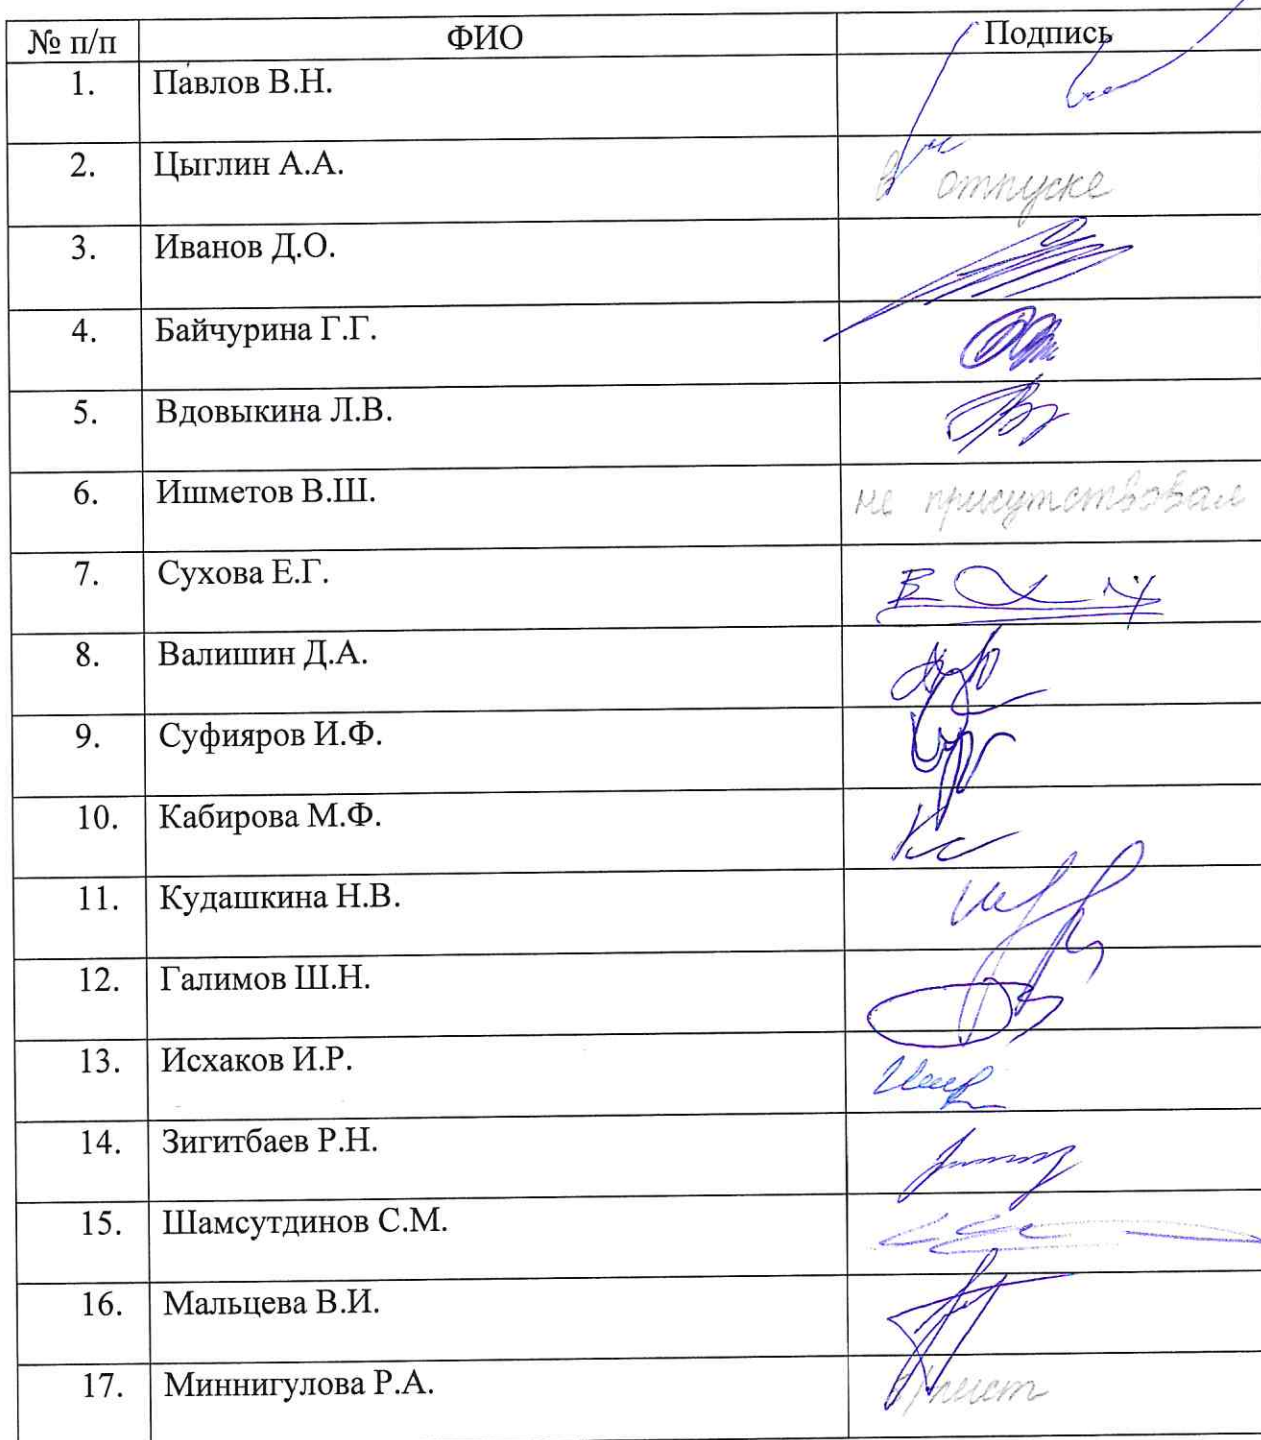 № п/п ФИО Подпись
1. Павлов В.Н.
2. Цыглин А.А. в отпуске
3. Иванов Д.О.
4. Байчурина Г.Г.
5. Вдовыкина Л.В.
6. Ишметов В.Ш. не присутствовал
7. Сухова Е.Г.
8. Валишин Д.А.
9. Суфияров И.Ф.
10. Кабирова М.Ф.
11. Кудашкина Н.В.
12. Галимов Ш.Н.
13. Исхаков И.Р.
14. Зигитбаев Р.Н.
15. Шамсутдинов С.М.
16. Мальцева В.И.
17. Миннигулова Р.А.